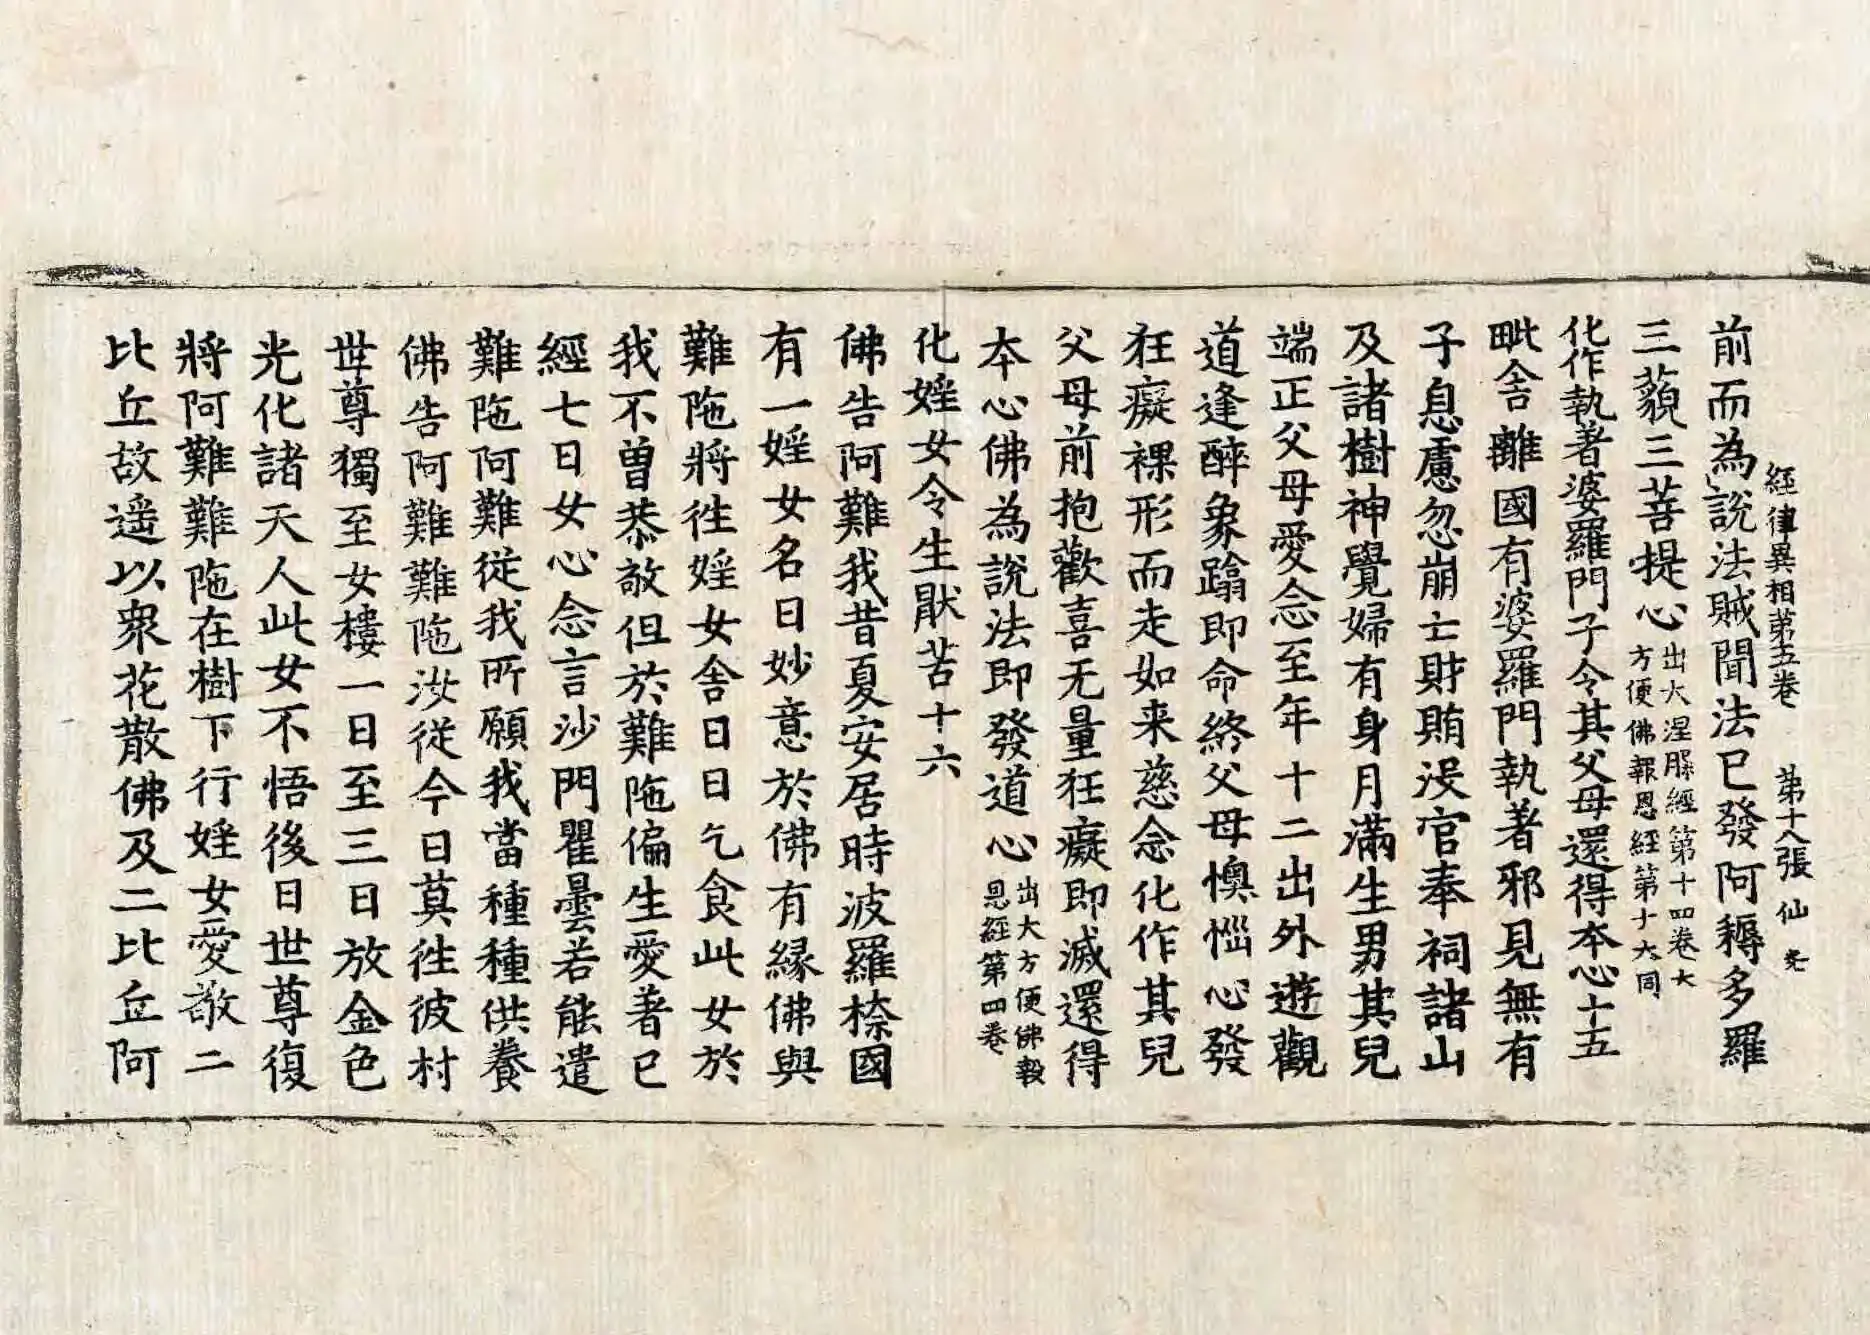 經律異相第五卷 第十八張 仙
前而為說法賊聞法已發阿耨多羅
三藐三菩提心出大涅槃經第十四卷大
方便佛報恩經第十六同
化作執著婆羅門子令其父母還得本心十五
毗舍離國有婆羅門執著邪見無有
子息慮忽崩亡財賄没官奉祠諸山
及諸樹神覺婦有身月滿生男其兒
端正父母愛念至年十二出外遊觀
道逢醉象蹹即命終父母懊惱心發
狂癡裸形而走如来慈念化作其兒
父母前抱歡喜无量狂癡即滅還得
本心佛為說法即發道心出大方便佛報
恩經第四卷
化婬女令生猒苦十六
佛告阿難我昔夏安居時波羅㮈國
有一婬女名曰妙意於佛有緣佛與
難陁將徃婬女舍日日乞食此女於
我不曽恭敬但於難陁偏生愛著已
經七日女心念言沙門瞿曇若能遣
難陁阿難從我所願我當種種供養
佛告阿難難陁汝從今日莫徃彼村
世尊獨至女樓一日至三日放金色
光化諸天人此女不悟後日世尊復
將阿難難陁在樹下行婬女愛敬二
比丘故遥以衆花散佛及二比丘阿